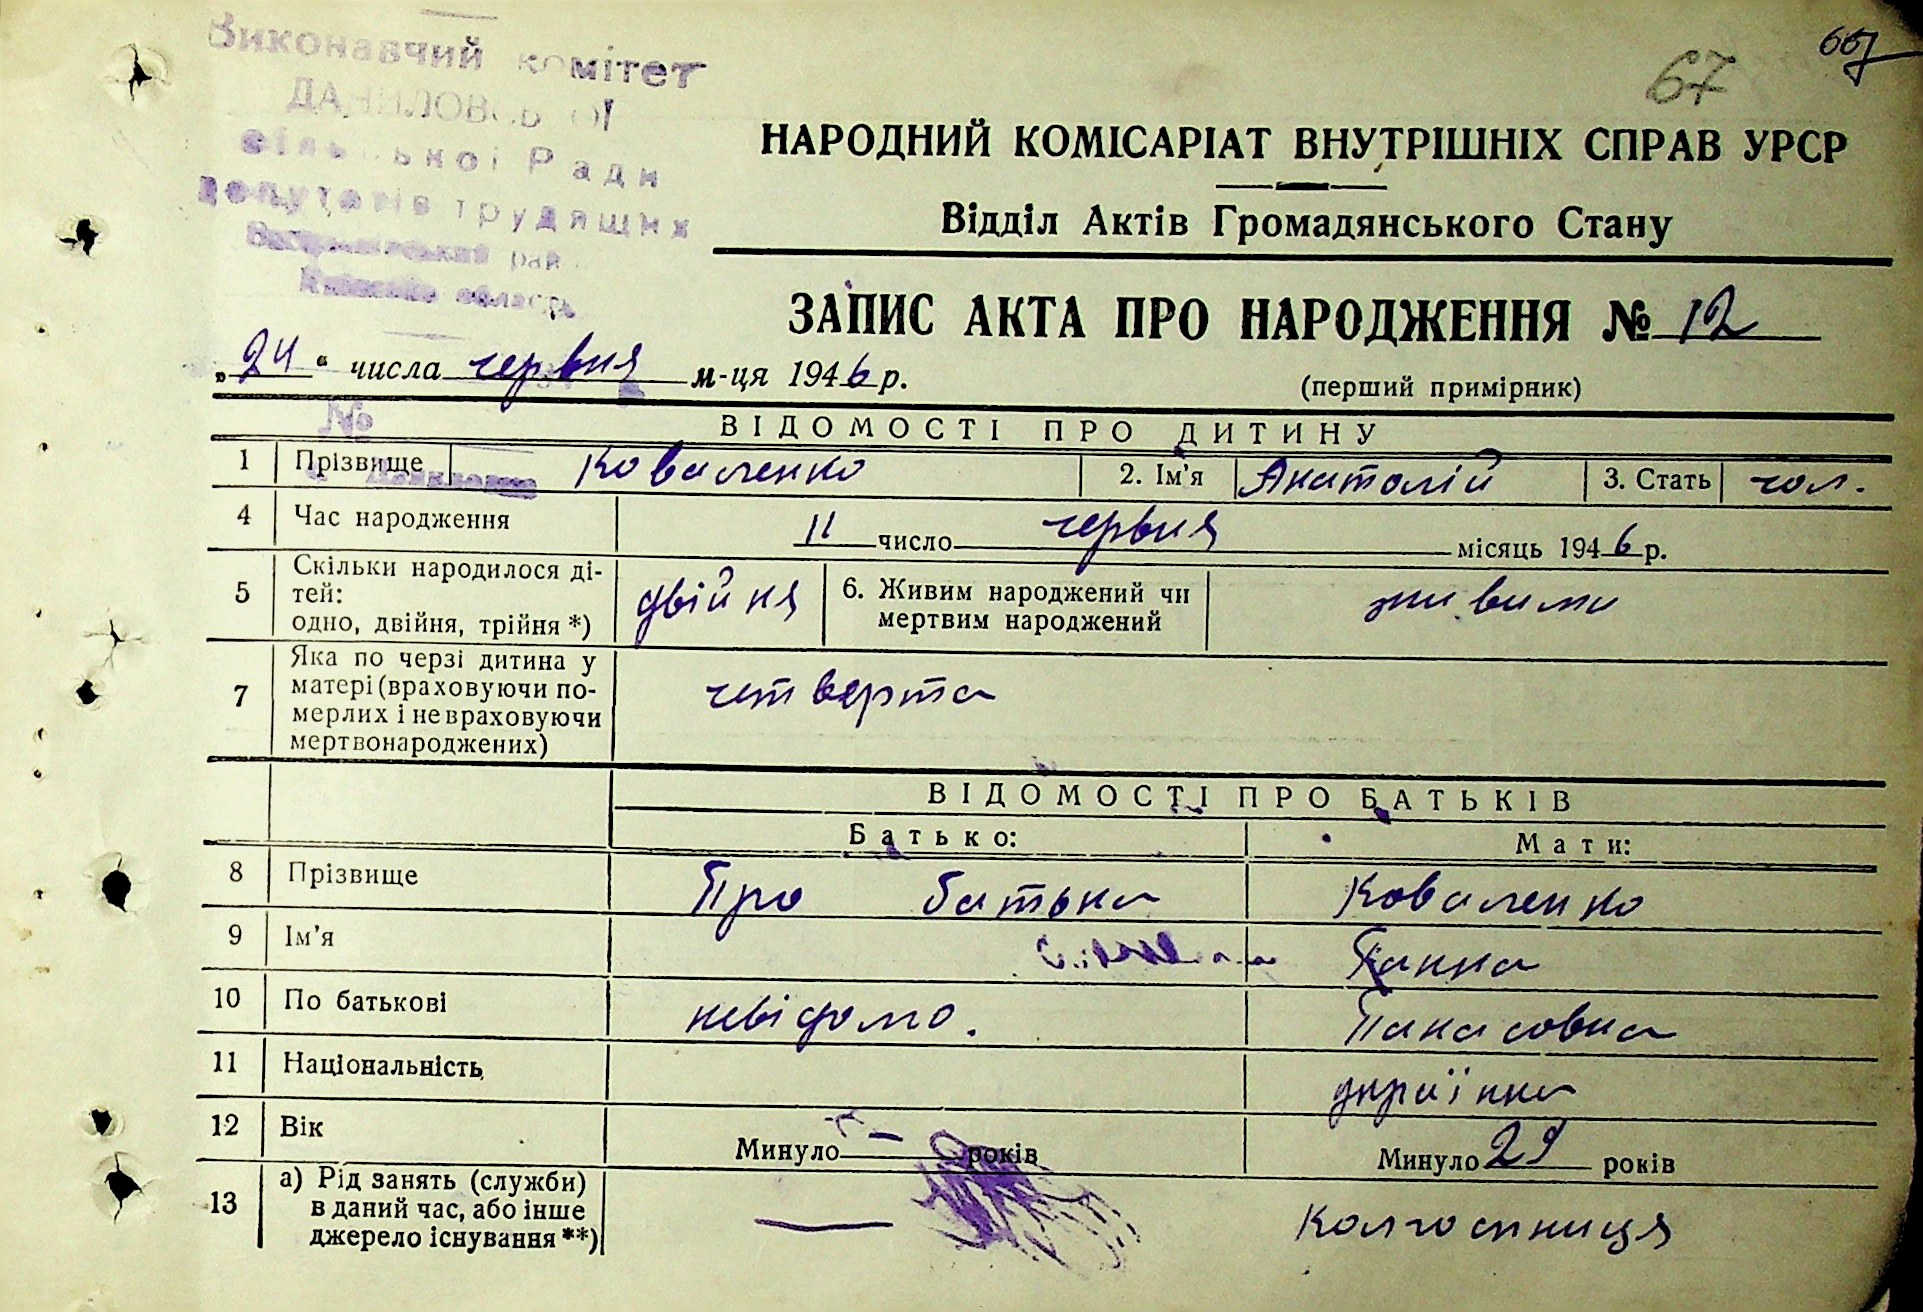 667
67
Виконавчий комітет
ДАНИЛОВСЬКОЇ
сільської Ради
депутатів трудящих
рай.
область
НАРОДНИЙ КОМІСАРІАТ ВНУТРІШНІХ СПРАВ УРСР
Відділ Актів Громадянського Стану
ЗАПИС АКТА ПРО НАРОДЖЕННЯ № 12
„24“ числа червня м-ця 1946 р.
(перший примірник)
№
ВІДОМОСТІ ПРО ДИТИНУ
1 Прізвище Коваленко 2. Ім’я Анатолій 3. Стать чол.
4 Час народження 11 число червня місяць 1946 р.
5 Скільки народилося ді-
тей:
одно, двійня, трійня *) двійня
6. Живим народжений чи
мертвим народжений живими
7 Яка по черзі дитина у
матері (враховуючи по-
мерлих і не враховуючи
мертвонароджених) четверта
ВІДОМОСТІ ПРО БАТЬКІВ
Батько: Мати:
8 Прізвище Про батька Коваленко
9 Ім’я Ганна
10 По батькові невідомо. Панасовна
11 Національність українка
12 Вік Минуло — років Минуло 29 років
13 а) Рід занять (служби)
в даний час, або інше
джерело існування **) — Колгоспниця